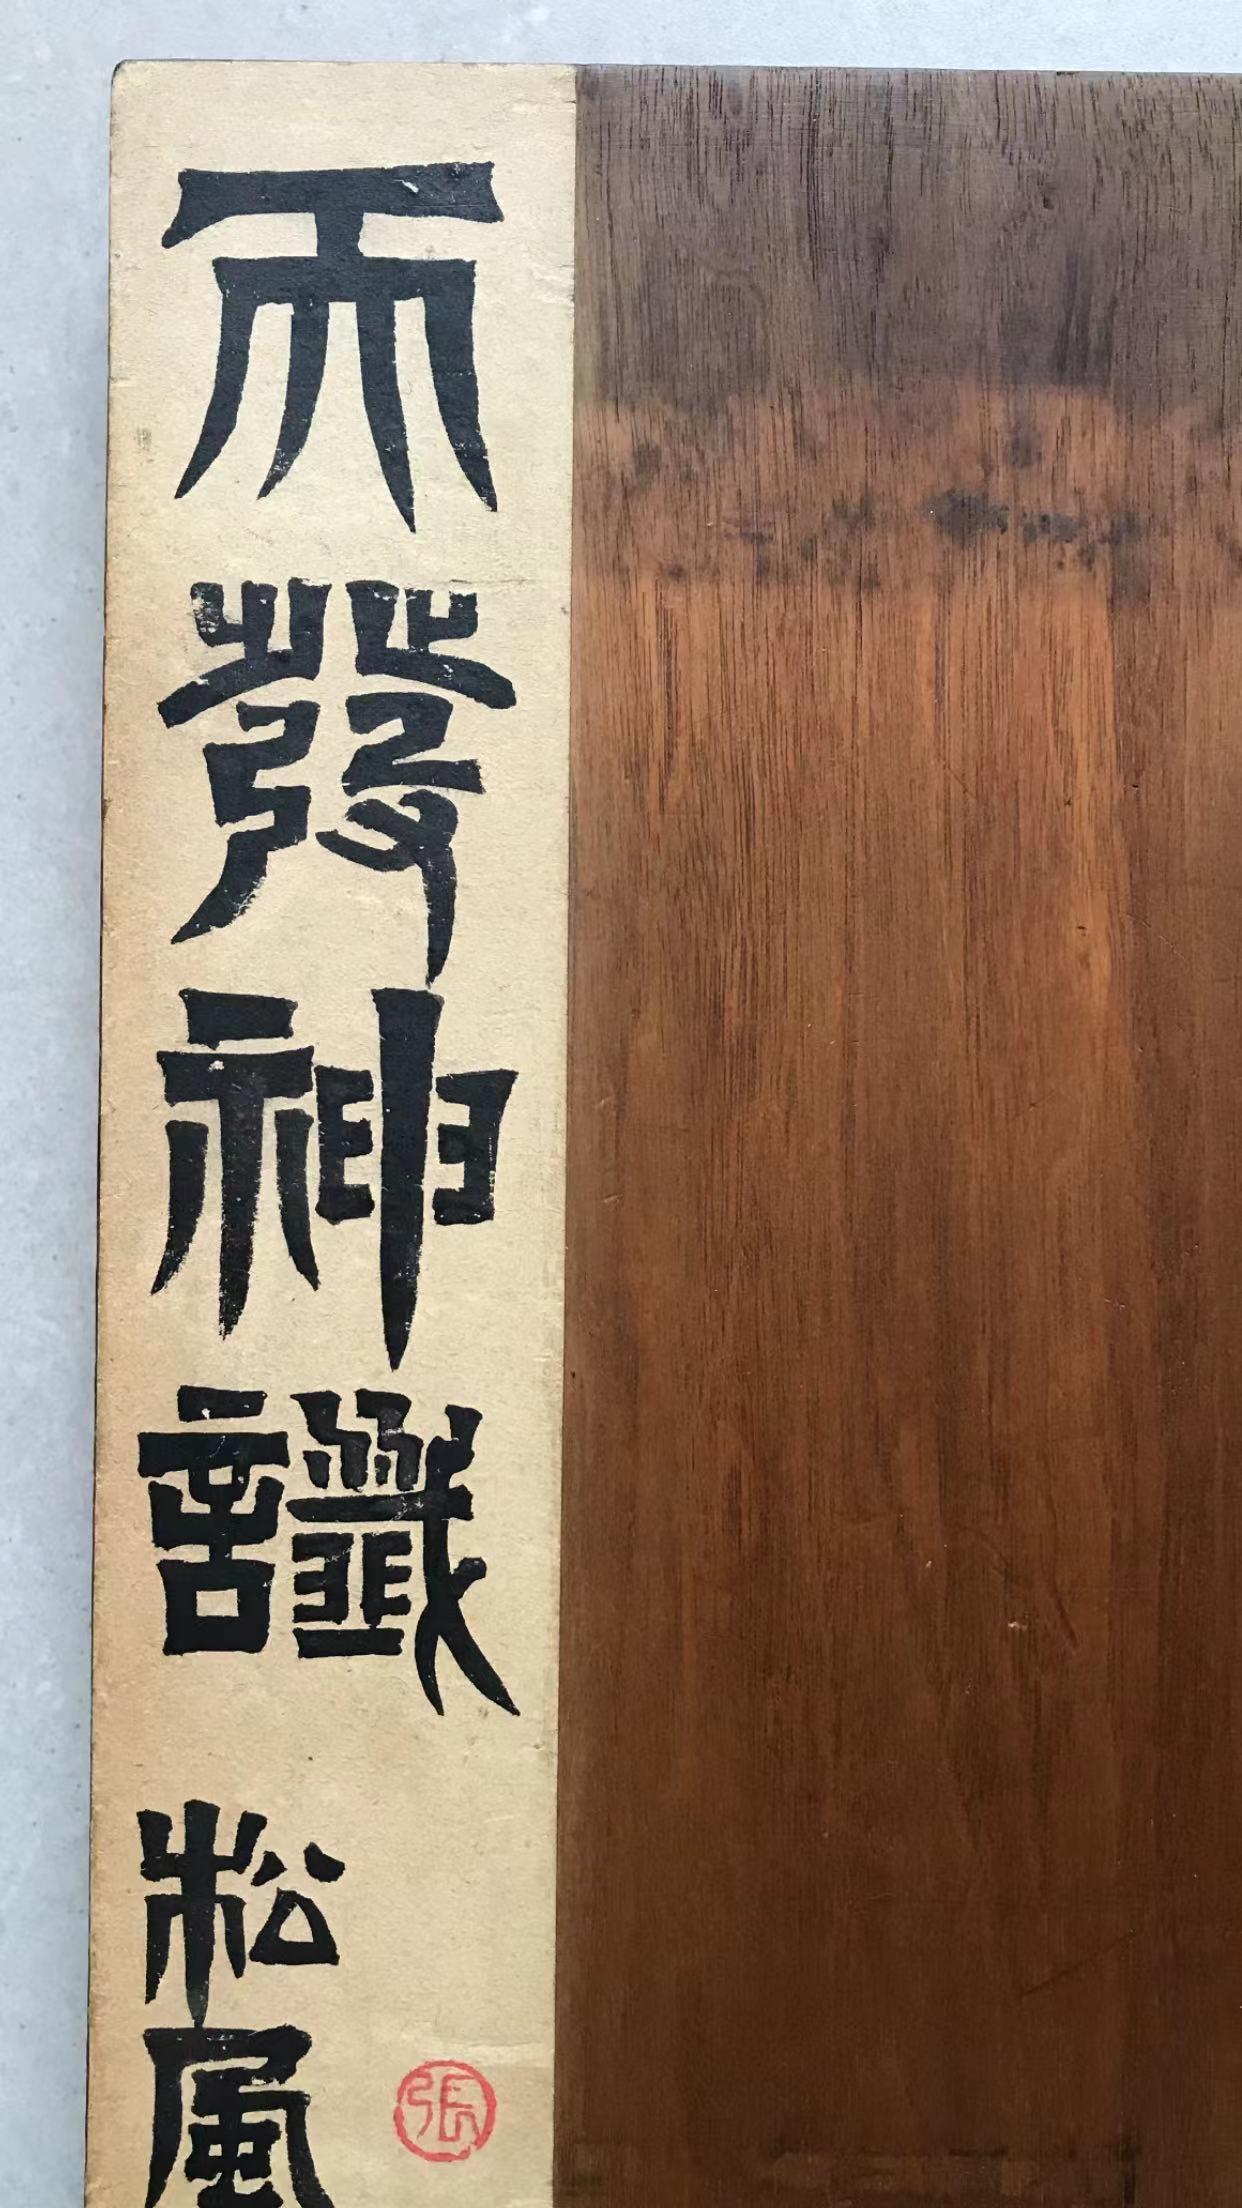 天發神讖
松風
張